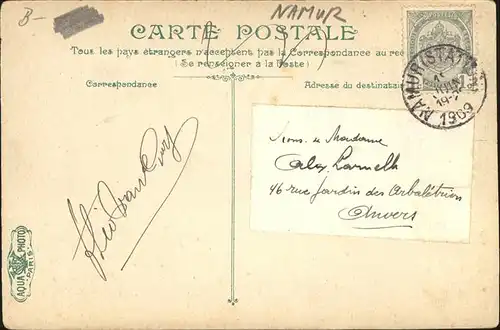 B-
NAMUR
CARTE POSTALE
Tous les pays étrangers n'acceptent pas la Correspondance au rec
(Se renseigner à la Poste)
Correspondance
Adresse du destinatai
NAMUR (STATI
JUIN
1909
Mons. et Madame
Alex.
46 rue Jardin des Arbalétriers
Anvers
AQUA PHOTO
PARIS